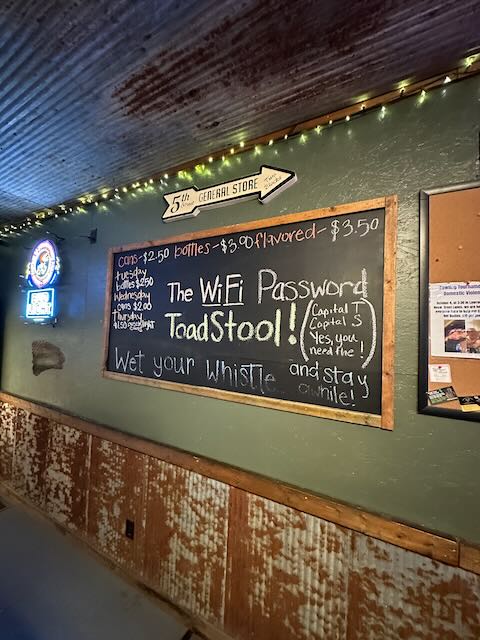 5th Street GENERAL STORE Two Blocks
cans-$2.50 bottles-$3.00 flavored-$3.50
tuesday
bottles $2.50
Wednesday
cans $2.00
Thursday
The WiFi Password
ToadStool!
(Capital T
Capital S
Yes, you
need the !)
Wet your Whistle and stay
awhile!
Domestic Violen